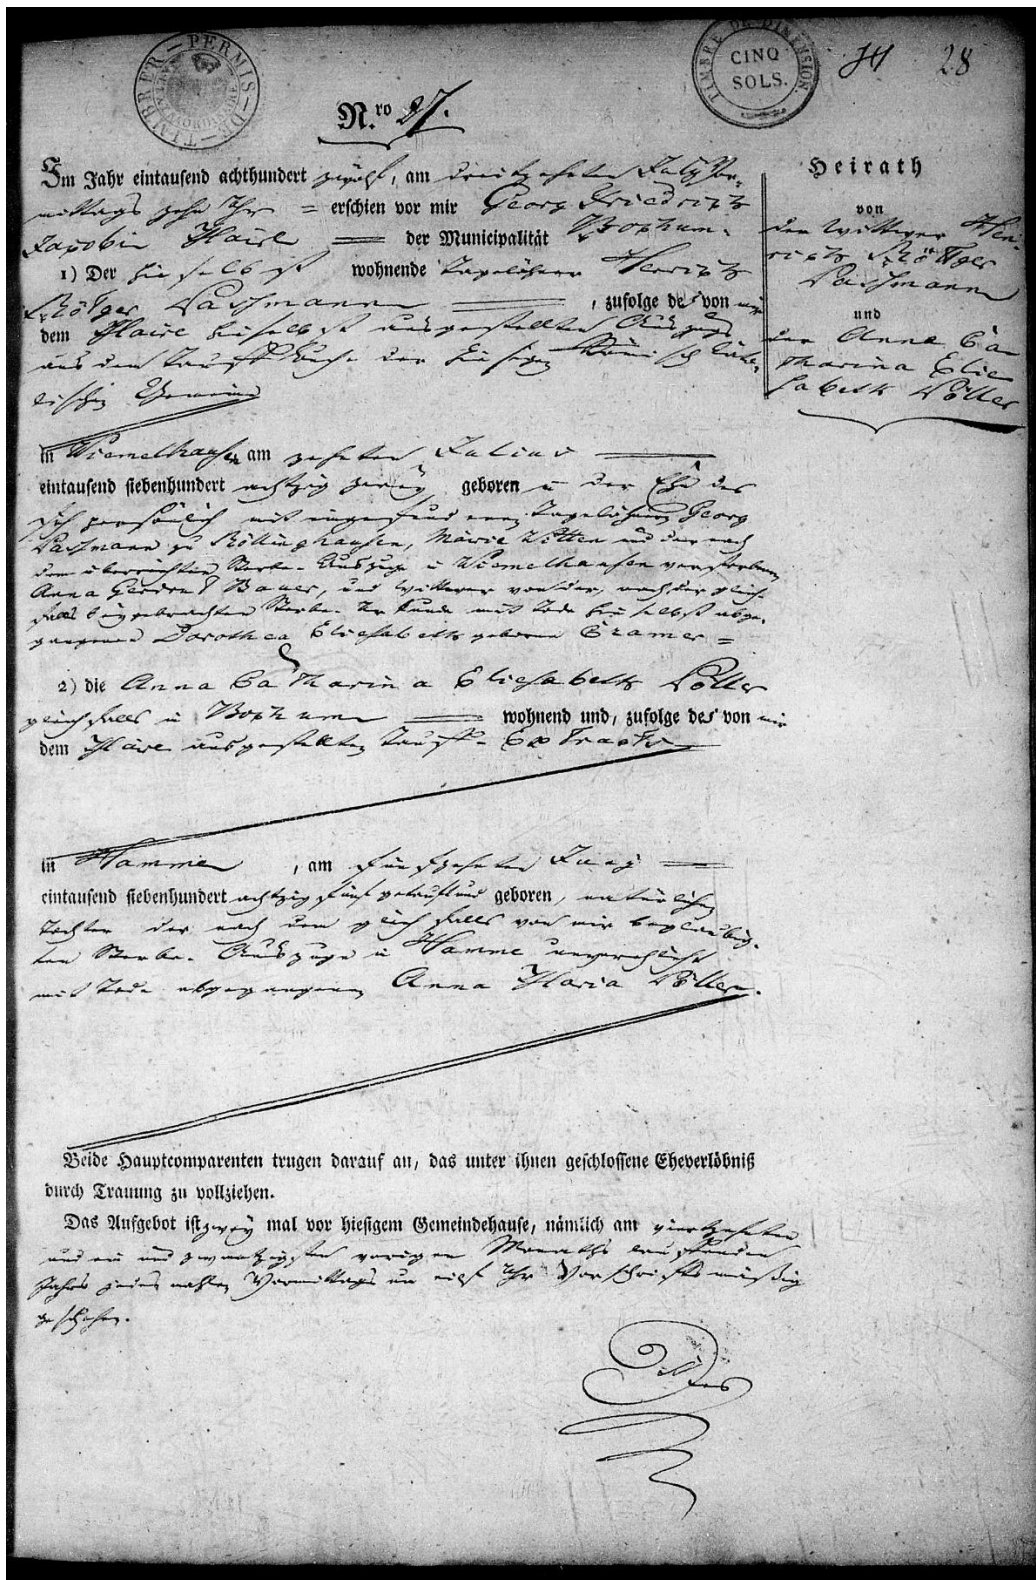 PERMIS DE TIMBRER
TIMBRE DE DIMENSION.
CINQ
SOLS.
28
N.ro 27.
Im Jahr eintausend achthundert zwölf, am dreitzehnten July Vor-
mittags zehn Uhr = erschien vor mir Georg Friedrich
Jacobi Maire der Municipalität Bochum.
1) Der hieselbst wohnende Tagelöhner Henrich
Rötger Pattmann, zufolge des von mir
dem Maire hieselbst ausgestellten Auszugs
aus dem Taufbuche der hiesigen
Gemeine
Heirath
von
den Wittwer Hen-
rich Röttger
und
der Anna Ca-
tharina Elie-
sabeth Löller
in Wiemelhausen am zehnten Julius
eintausend siebenhundert achtzig zwey geboren in der Ehe des
sich persönlich mit Tagelöhners Georg
zu Röllinghausen, und der nach
dem überreichten Sterbe-Auszuge in Wiemelhausen verstorbenen
Anna Bauer, und Wittwer von der, nach der gleich-
falls beygebrachten Sterbe-Urkunde mit Tode hieselbst abge-
gangenen Dorothea Eliesabeth geborne Cramer =
2) die Anna Catharina Eliesabeth Löller
gleichfalls in Bochum wohnend und, zufolge des von mir
dem Maire ausgestellten Tauf-Extracts
in Hamme, am fünfzehnten Juny
eintausend siebenhundert achtzig fünf getauft und geboren, natürliche
Tochter der nach dem gleichfalls von mir beglaubig-
ten Sterbe-Auszuge in Hamme unverehlicht
mit Tode abgegangenen Anna Maria Löller.
Beide Hauptcomparenten trugen darauf an, das unter ihnen geschlossene Eheverlöbniß
durch Trauung zu vollziehen.
Das Aufgebot ist zwey mal vor hiesigem Gemeindehause, nämlich am vierzehnten
und ein und zwantzigsten vorigen Monaths laufenden
Jahrs jedes mahl Vormittags um eilf Uhr Vorschriftsmäßig
geschehen.